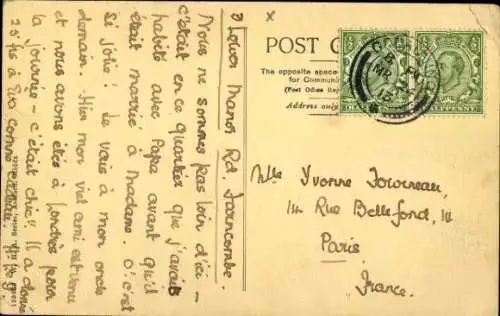 3 Lower Manor Rd. Farncombe
Nous ne sommes pas loin d'ici -
c'était en ce quartier que j'avais
habité avec Papa avant qu'il
était marrié à madame. O! c'est
si jolie! Je vais à mon oncle
demain. Hier mon viel ami est venu
et nous avons étés à Londres pour
la journée - c'était chic!! Il a donné
25 frs à Eva comme cadeau.
x
POST C
The opposite space
for Commun
(Post Office Reg
Address only
Mlle Yvonne Fourneau,
14 Rue Bellefond, 14
Paris
France.